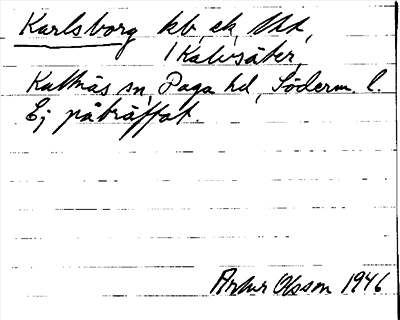 Karlsborg kb, ek, Und,
1 Kalvsäter,
Kattnäs sn, Daga hd, Söderm. l.
Ej påträffat.
Artur Olsson 1946